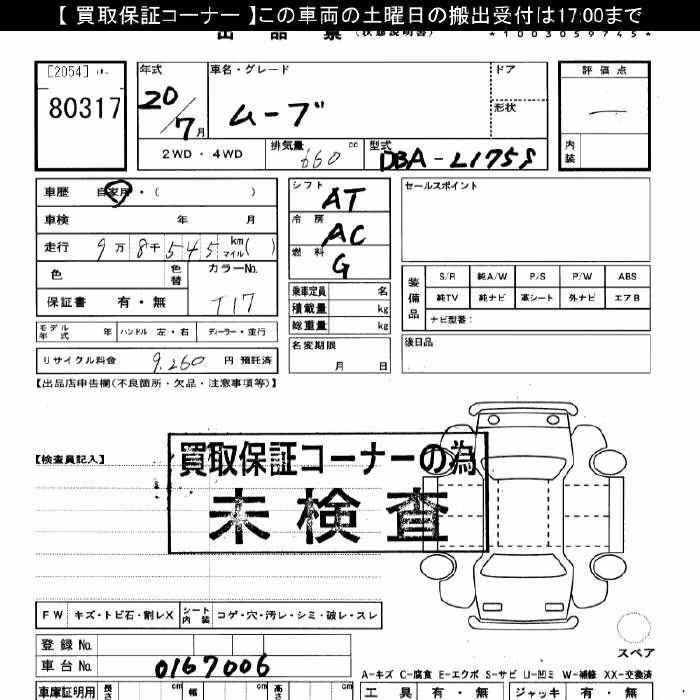 【 買取保証コーナー 】この車両の土曜日の搬出受付は17:00まで
出 品 票 (状態説明書)
*1003059745*
[2054]
80317
年式
20/7月
車名・グレード
ムーブ
ドア
形状
評価点
—
内装
2WD ・ 4WD
排気量
660 cc
型式
DBA-L175S
車歴 自家用 ・ ( )
車検 年 月
走行 9万8千545 km マイル( )
色
色替
カラーNo.
T17
保証書 有・無
モデル年式 年 ハンドル 左・右 ディーラー・並行
リサイクル料金 9,260 円 預託済
シフト AT
冷房 AC
燃料 G
乗車定員 名
積載量 kg
総重量 kg
名変期限
月 日
セールスポイント
装備品
S/R 純A/W P/S P/W ABS
純TV 純ナビ 革シート 外ナビ エアB
ナビ型番:
後日品
【出品店申告欄(不良箇所・欠品・注意事項等)】
【検査員記入】
買取保証コーナーの為
未検査
FW キズ・トビ石・割レX シート内装 コゲ・穴・汚レ・シミ・破レ・スレ
スペア
登録No.
車台No. 0167006
A-キズ C-腐食 E-エクボ S-サビ U-凹ミ W-補修 XX-交換済
車庫証明用 長さ cm 幅 cm 高さ cm
工具 有・無 ジャッキ 有・無